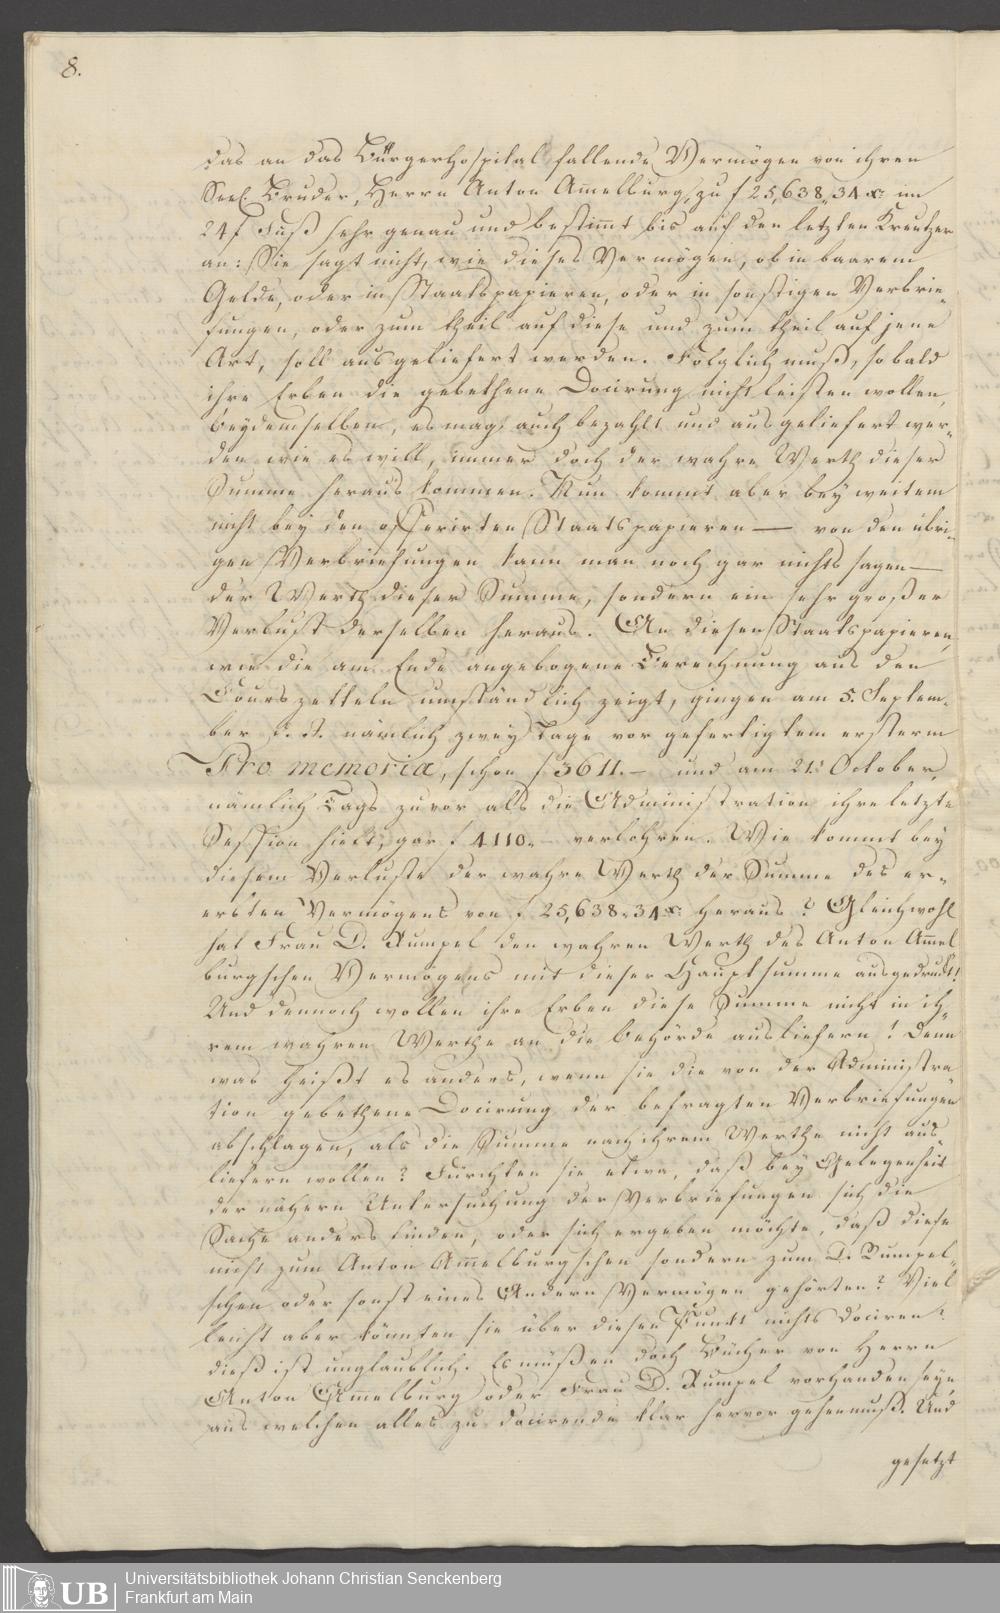 8.
das an das Bürgerhospital fallende Vermögen von ihren
Seel. Bruder, Herrn Anton Am̄elburg, zu f 25,638„ 34 x: im
24 f Fuß sehr genau und bestim̄t bis auf den letzten Kreutzer
an: Sie sagt nicht, wie dieses Vermögen, ob in baarem
Gelde, oder in Staatspapieren, oder in sonstigen Verbrie-
fungen, oder zum theil auf diese und zum theil auf jene
Art, soll ausgeliefert werden. Folglich muß, so bald
ihre Erben die gebethene Docirung nicht leisten wollen,
beydemselben, es mag auch bezahlt und ausgeliefert wer-
den wie es will, immer doch der wahre Werth dieser
Summe heraus kommen. Nun kommt aber bey weitem
nicht bey den offerirten Staatspapieren — von den übri-
gen Verbriefungen kann man noch gar nichts sagen —
der Werth dieser Summe, sondern ein sehr großer
Verlust derselben heraus. An diesen Staatspapieren,
wie die am Ende angebogene Berechnung aus den
Courszetteln umständlich zeigt, gingen am 5. Septem-
ber d. J. nämlich zwey Tage vor gefertigtem ersterm
Pro memoria, schon f 3611.— und am 21. October,
nämlich Tags zuvor als die Administration ihre letzte
Session hielt, gar f. 4110.— verlohren. Wie kommt bey
diesem Verluste der wahre Werth der Summe des er-
erbten Vermögens von f. 25,638„ 34 x: heraus? Gleichwohl
hat Frau D. Rumpel den wahren Werth des Anton Am̄el
burgschen Vermögens mit dieser Hauptsumme ausgedruckt!
Und dennoch wollen ihre Erben diese Summe nicht in ih-
rem wahren Werthe an die Behörde ausliefern! Denn
was heißt es anders, wenn sie die von der Administra-
tion gebethene Docirung der befragten Verbriefungen
abschlagen, als die Summe nach ihrem Werthe nicht aus-
liefern wollen? Fürchten sie etwa, daß bey Gelegenheit
der nähern Untersuchung der Verbriefungen sich die
Sache anders finden, oder sich ergeben möchte, daß diese
nicht zum Anton Am̄elburgschen sondern zum D. Rumpel-
schen oder sonst eines Andern Vermögen gehörten? Viel
leicht aber könnten sie über diesen Punkt nichts dociren?
dieß ist unglaublich. Es müßen doch Bücher von Herrn
Anton Am̄elburg oder Frau D. Rumpel vorhanden seyn,
aus welchen alles zu docirende klar hervor gehen muß. Und
gesetzt
UB
Universitätsbibliothek Johann Christian Senckenberg
Frankfurt am Main